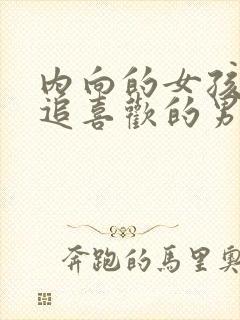 内向的女孩
追喜歡的男
奔跑的馬里奧